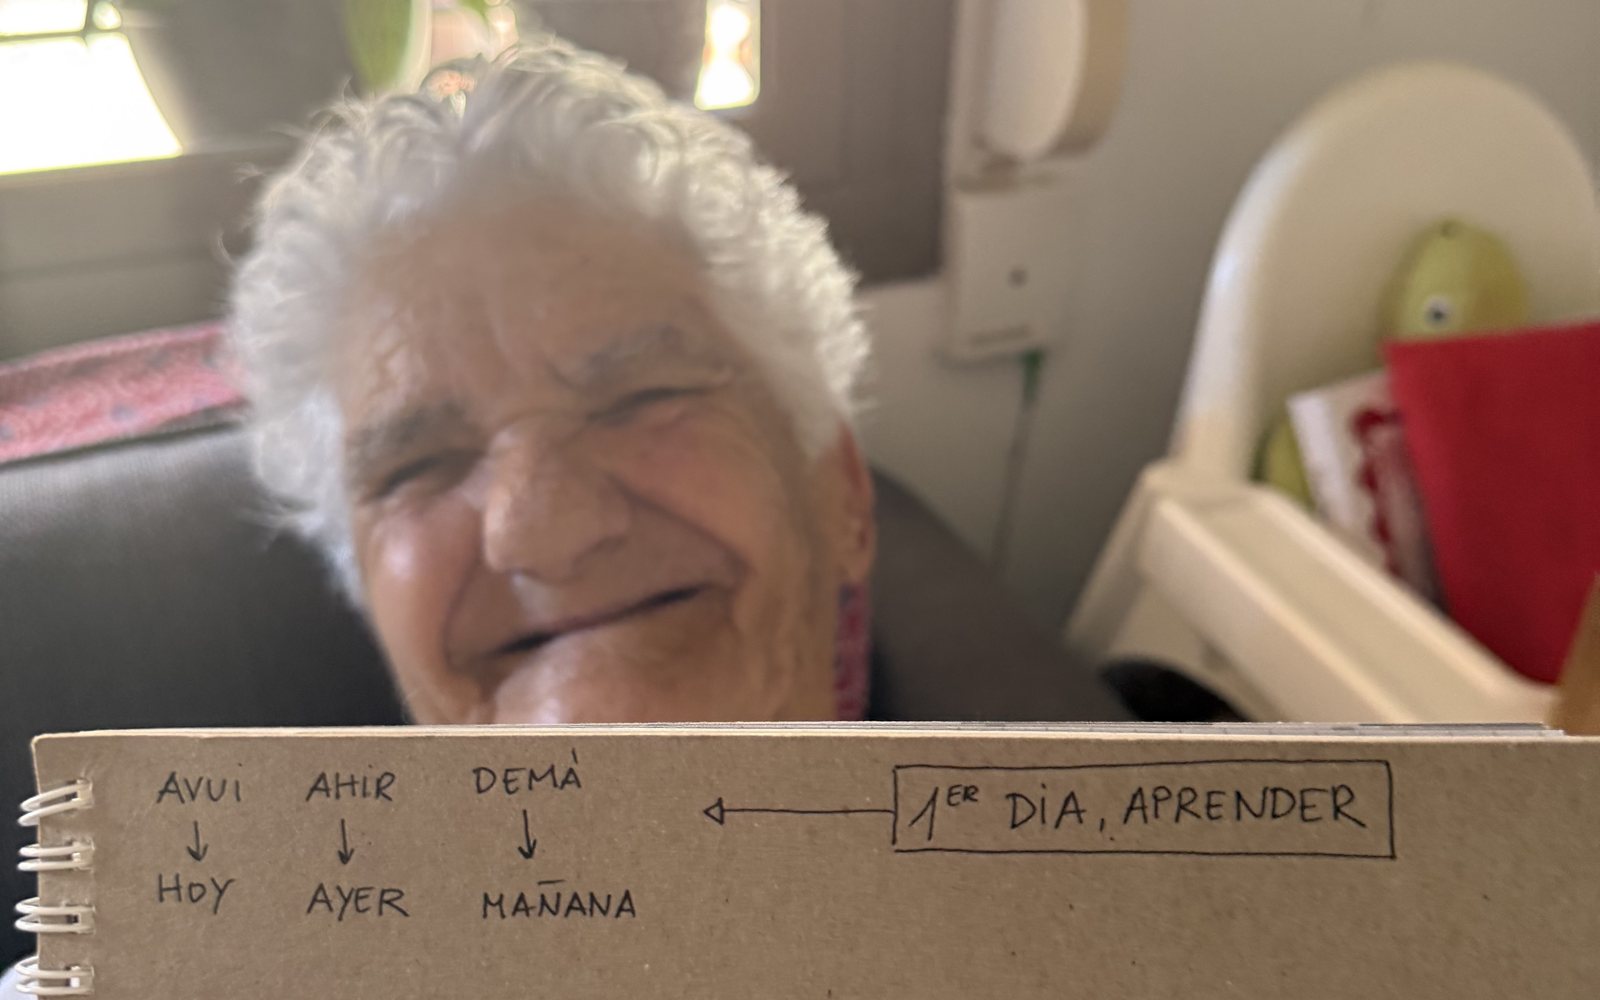 AVUI AHIR DEMÀ
1ER DIA, APRENDER
HOY AYER MAÑANA